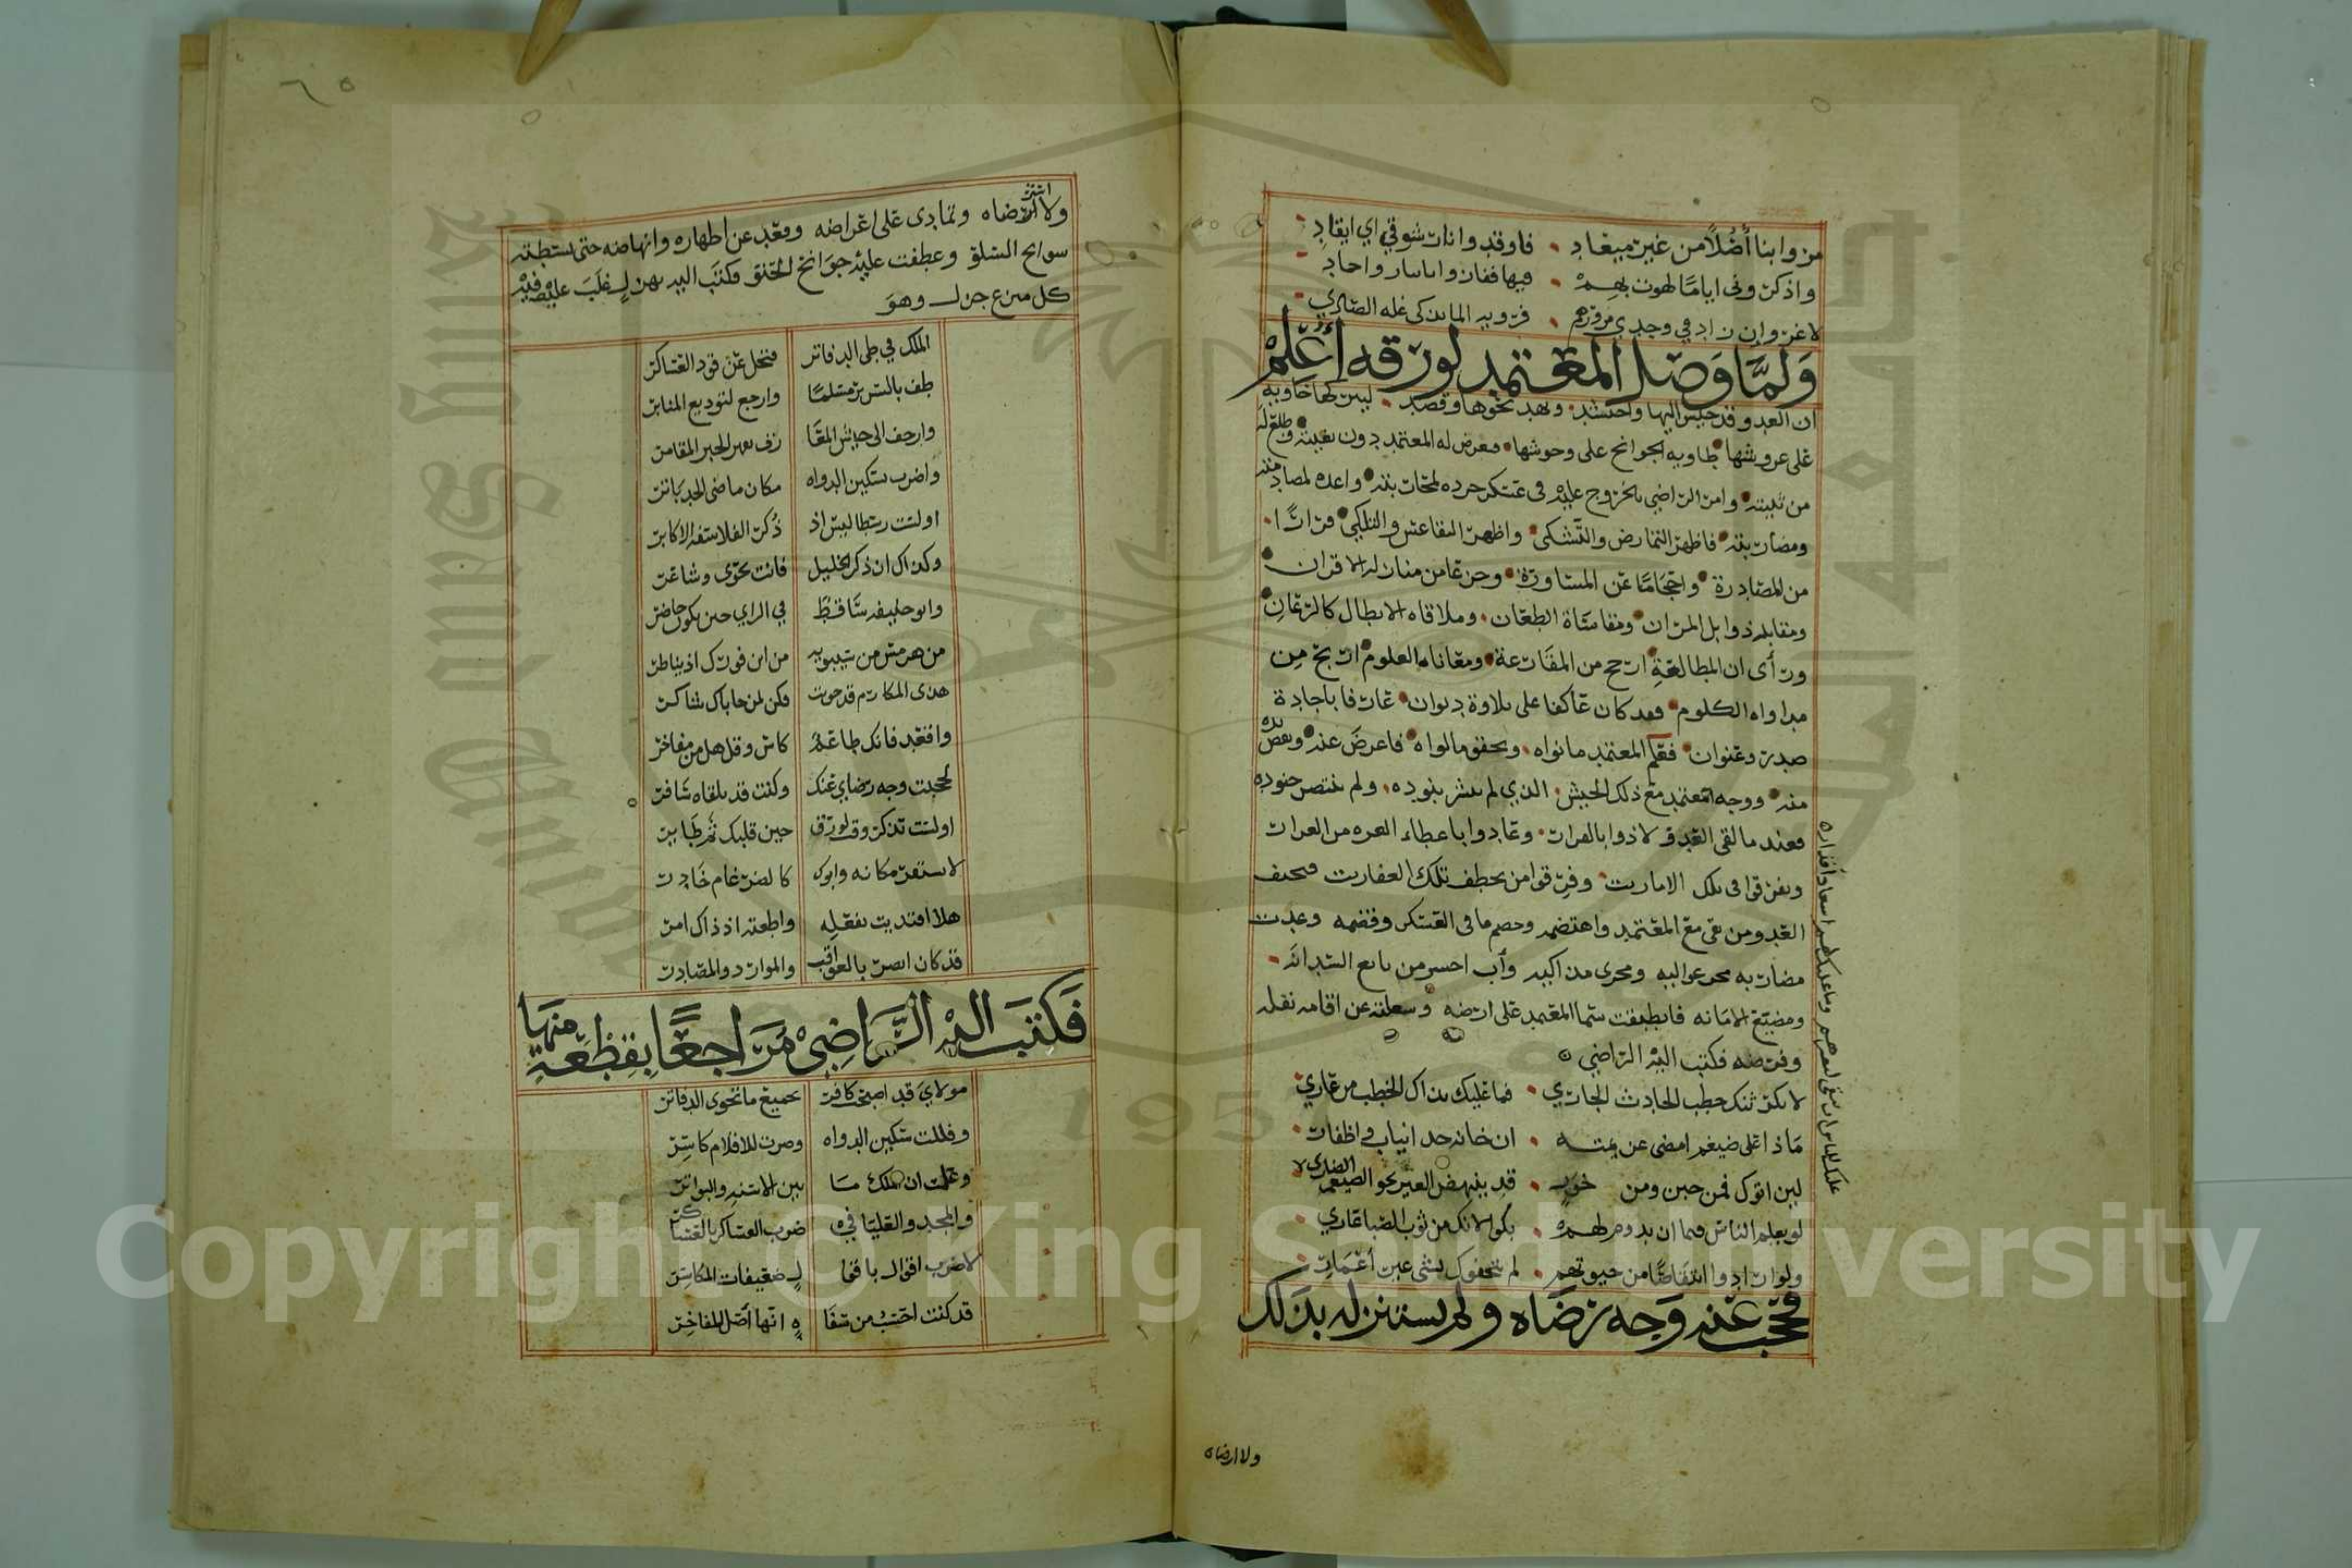 من وابنا أضلا من غير ميعاد • فاوقدوا نار شوقي اي ايقاد
واذكروني اياما لهوت بهم • فيها ففازوا بايثار واحماد
لا غرو ان زاد في وجدي مرورهم • فرويه الما يذكى غله الصادي
ولما وصل المعتمد لورقه اعلم
ان العدو قد جيش اليها واحتشد • ونهد نحوها وقصد • ليتركها خاويه
على عروشها • طاويه الجوانح على وحوشها • فعرض له المعتمد دون بغيته • وطلع له
من ثنيته • وامر الراضي بالخروج عليه في عسكر جرده لمحاربته • واعده لمصادمته
ومضاربته • فاظهر التمارض والتشكي • واظهر التقاعس والتلكي • فرارا
من المصادرة • واحجاما عن المساورة • وجزعا من منازلة الاقران •
ومقابله ذوابل المران • ومقاساة الطعان • وملاقاه الابطال كالرعان •
ورأى ان المطالعة ارجح من المقارعة • ومعاناه العلوم اربح من
مداواه الكلوم • فقد كان عاكفا على تلاوة ديوان • عارفا باجادة
صدر وعنوان • فعلم المعتمد مانواه • وتحقق مالواه • فاعرض عنه • ونفض يده
منه • ووجه المعتمد مع ذلك الجيش • الذي لم تنشر بنوده • ولم تنتصر جنوده
فعند ما لقى العدو لاذوا بالفرار • وعادوا باعطاء الغره من الغرار
وتفرقوا في تلك الامارت • وفرقوا من تخطف تلك العفارت فتحيف
العدو من بقي مع المعتمد واهتضمه وخصم ما في العسكر وقضمه وغدت
مضاربه مجر عواليه ومجرى مذاكيه وآب اخسر من بائع السدانه •
ومضيع الامانه فانطبقت سما المعتمد على ارضه وشغلته عن اقامه نفله
وفرضه فكتب اليه الراضي
لا يكرثنك خطب الحادث الجاري • فما عليك بذاك الخطب من عاري
ماذا على ضيغم امضى عزيمته • ان خانه حد انياب واظفار
لين اتوك فمن جبن ومن خور • قد ينهض العير نحو الضيغم الضاري
لو يعلم الناس فيما ان يدوم لهم • بكوا لانك من ثوب الصبا عاري
ولو ارادوا انتقاصا من حيوتهم • لم يتحفوك بشي غير أعمار
فحجب عنه وجه رضاه ولم يستنزله بذلك
ولا ارضاه
ولا استرضاه وتمادى على اعراضه وقعد عن اظهاره وانهاضه حتى بسطته
سوانح السلو وعطفت عليه جوانح الحنو فكتب اليه بهزل غلب عليه وفيه
كل منزع جزل وهو
الملك في طي الدفاتر فتخل عن قود العساكر
طف بالسرير مسلما وارجع لتوديع المنابر
وازحف الى جيش المعا رف تقهر الحبر المقامر
واضرب بسكين الدواه مكان ماضي الحد باتر
اولست رسطاليس اذ ذكر الفلاسفه الاكابر
وكذاك ان ذكر الخليل فانت نحوى وشاعر
وابو حنيفه ساقط في الراي حين يكون حاضر
من هرمس من سيبويه من ابن فورك اذ يناظر
هذى المكارم قد حويت فكن لمن حاباك شاكر
واقعد فانك طاعم كاس وقل هل من مفاخر
لحجبت وجه رضاي عنك وكنت قد تلقاه سافر
اولست تذكر وقت لورق حين قلبك ثم طاير
لا يستقر مكانه وابوك كالضرغام خادر
هلا اقتديت بفعله واطعته اذ ذاك امر
قد كان ابصر بالعواقب والموارد والمصادر
فكتب اليه الراضي مراجعا بقطعة منها
مولاي قد اصبحت كافر بجميع ما تحوى الدفاتر
وفللت سكين الدواه وصرت للاقلام كاسر
وعلمت ان الملك ما بين الاسنه والبواتر
والمجد والعليا في ضرب العساكر بالعساكر
لا ضرب اقوال باقوا ل ضعيفات المكاسر
قد كنت احسب من سفا ه انها أصل المفاخر